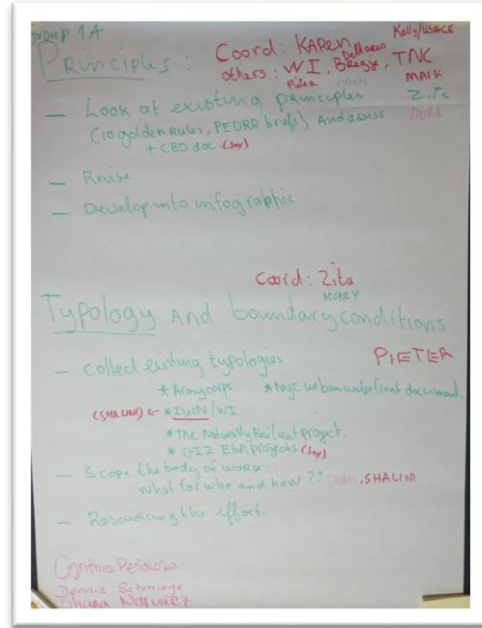 group 1A
Principles :
Coord: KAREN
Kelly/USACE
others: WI, Bregje, TNC
Deltares
Pieter
MARK
Zita
DORA
— Look at existing principles
(10 golden Rules, PEDRR briefs) And assess
+ CBD doc (Joy)
— Revise
— Develop into infographic
Coord: Zita
MARY
Typology And boundary conditions
PIETER
— collect existing typologies
* Army corps * NYC urban waterfront document
(SHALINI) ← * IUCN/WI
* TNC Naturally Resilient project.
* GIZ EbA projects (Joy)
— Scope the body of work:
what for who and how ?? DORA, SHALINI
— Resourcing the effort.
Cynthia Peñaloza
Dennis Schmiege
Liliana Narvaez